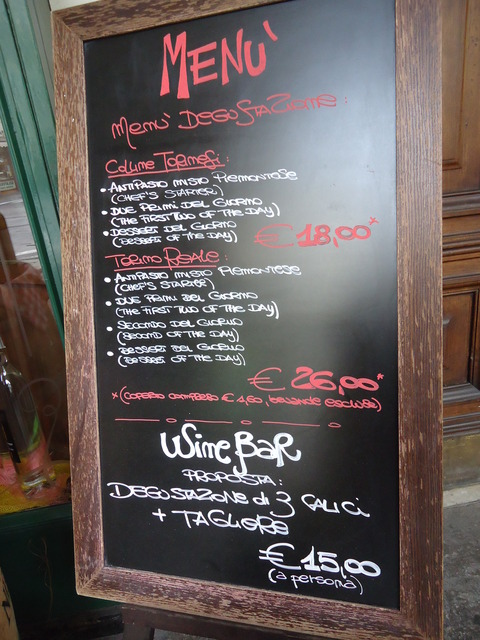 MENU'
MENU' DEGUSTAZIONE:
COLLINE TORINESI:
• ANTIPASTO MISTO PIEMONTESE
(CHEF'S STARTER)
• DUE PRIMI DEL GIORNO
(THE FIRST TWO OF THE DAY)
• DESSERT DEL GIORNO
(DESSERT OF THE DAY)
€ 18,00*
TORINO REALE:
• ANTIPASTO MISTO PIEMONTESE
(CHEF'S STARTER)
• DUE PRIMI DEL GIORNO
(THE FIRST TWO OF THE DAY)
• SECONDO DEL GIORNO
(SECOND OF THE DAY)
• DESSERT DEL GIORNO
(DESSERT OF THE DAY)
€ 26,00*
*(COPERTO COMPRESO € 1,60, BEVANDE ESCLUSE)
WINE BAR
PROPOSTA:
DEGUSTAZIONE di 3 CALICI
+ TAGLIERE
€ 15,00
(a persona)